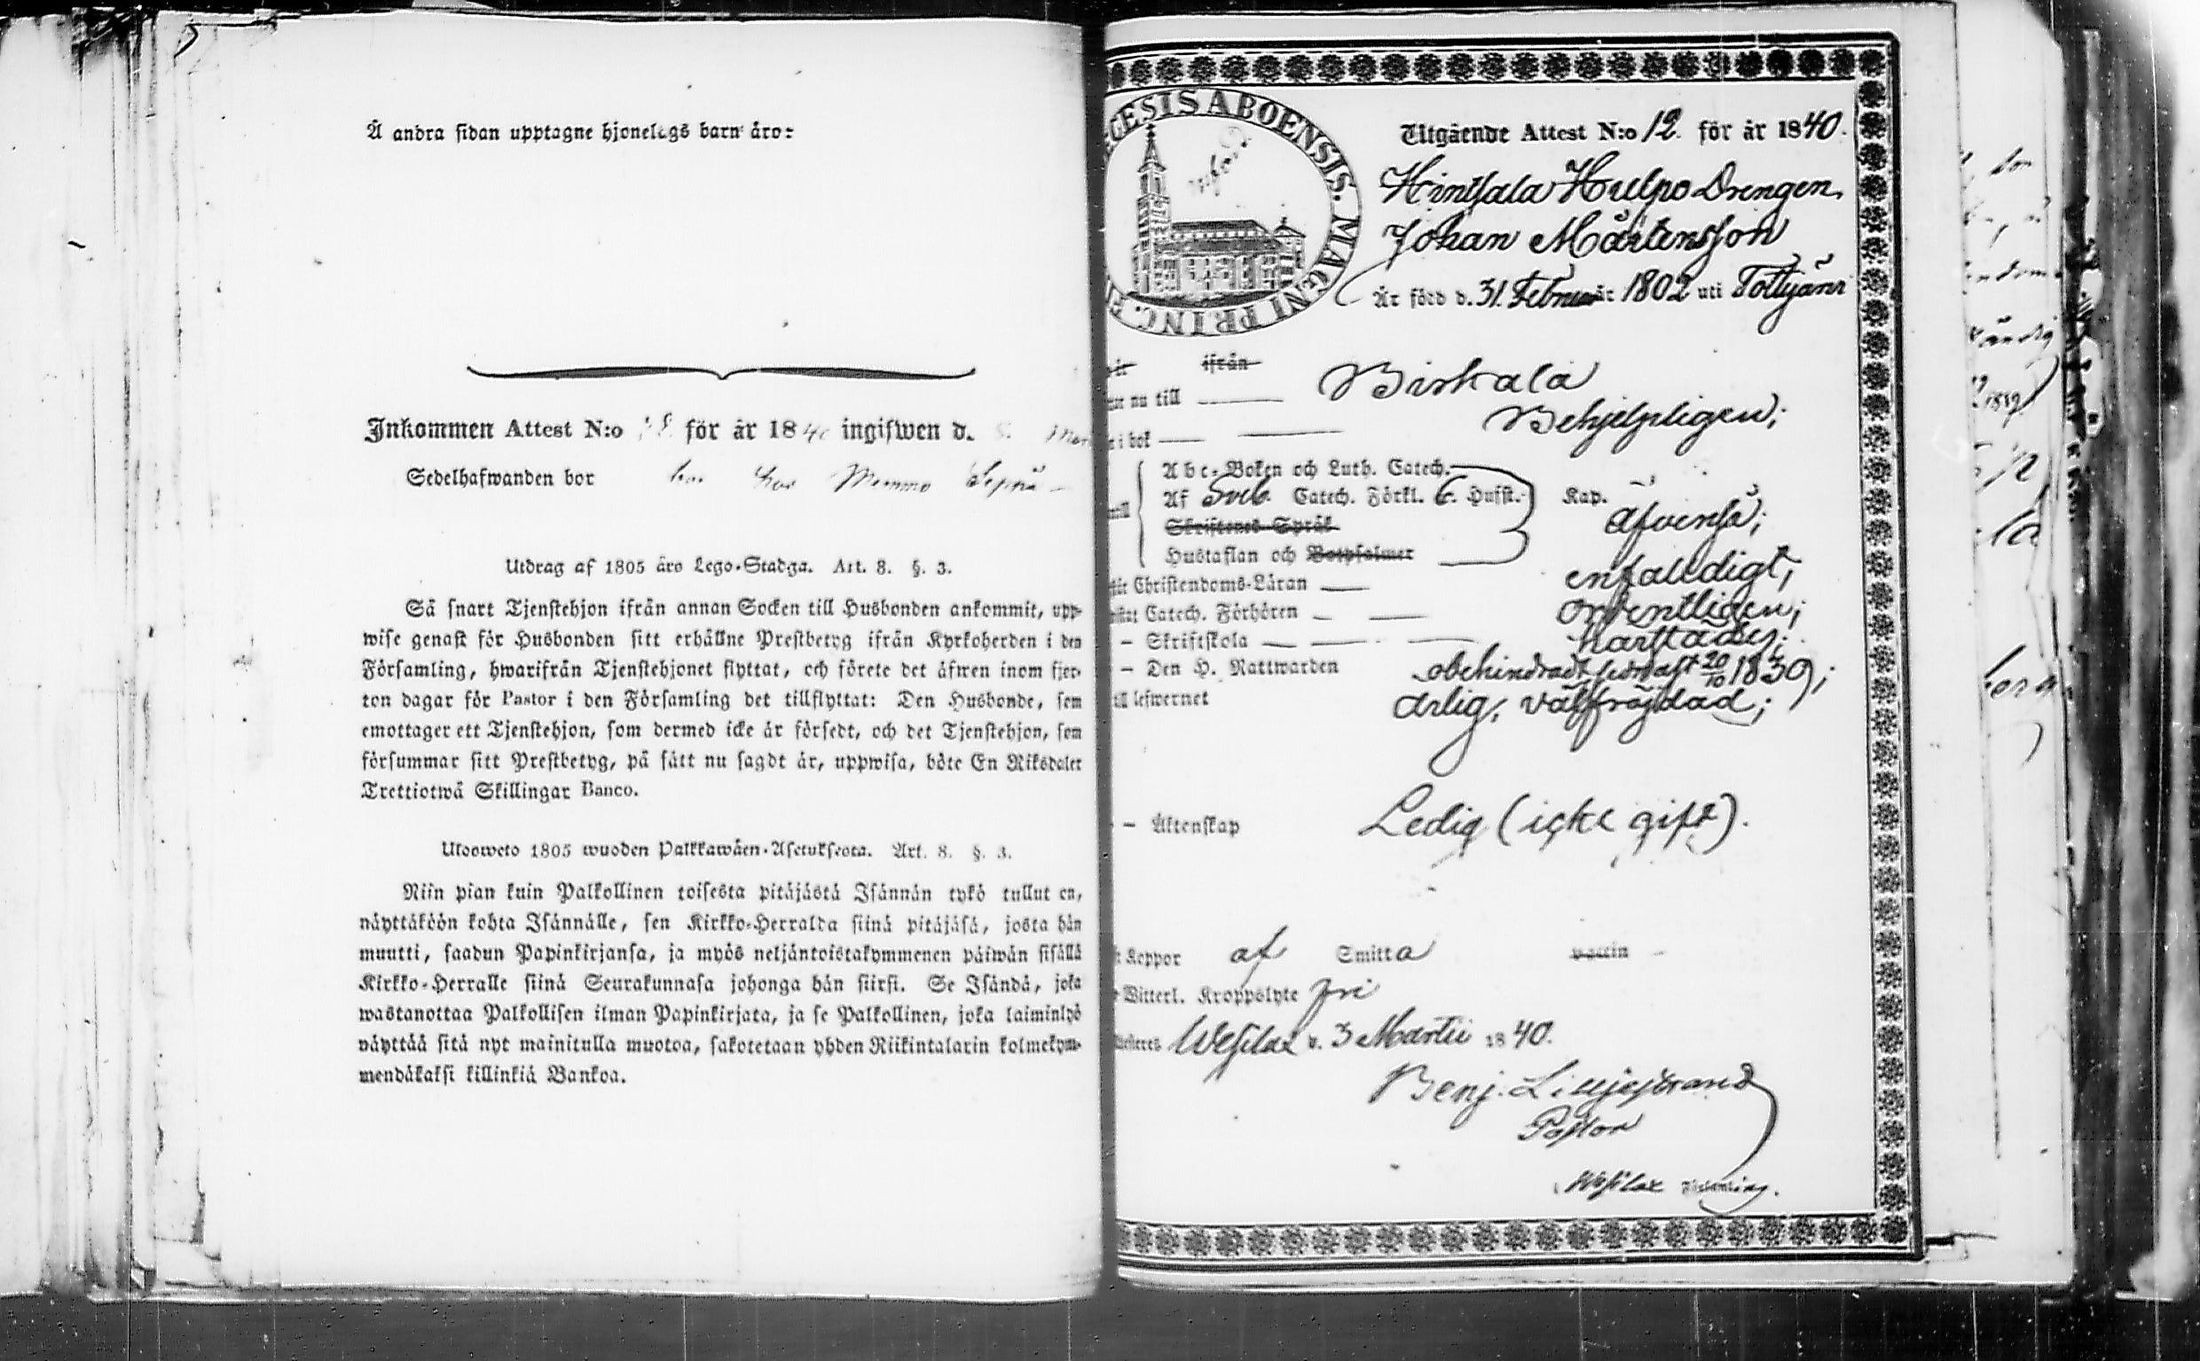 Å andra sidan upptagne hjonelags barn äro:
Inkommen Attest N:o för år 1840 ingifwen d.
Sedelhafwanden bor hos Memmo Seppä
Utdrag af 1805 års Lego-Stadga. Art. 8. §. 3.
Så snart Tjenstehjon ifrån annan Socken till Husbonden ankommit, upp-
wise genast för Husbonden sitt erhållne Prestbetyg ifrån Kyrkoherden i den
Församling, hwarifrån Tjenstehjonet flyttat, och förete det äfwen inom fjor-
ton dagar för Pastor i den Församling det tillflyttat: Den Husbonde, som
emottager ett Tjenstehjon, som dermed icke är försedt, och det Tjenstehjon, som
försummar sitt Prestbetyg, på sätt nu sagdt är, uppwisa, böte En Riksdaler
Trettiotwå Skillingar Banco.
Ulosweto 1805 wuoden Palkkawäen-Asetuksesta. Art. 8. §. 3.
Niin pian kuin Palkollinen toisesta pitäjästä Isännän tykö tullut on,
näyttäköön kohta Isännälle, sen Kirkko-Herralta siinä pitäjäsä, josta hän
muutti, saadun Papinkirjansa, ja myös neljäntoistakymmenen päiwän sisällä
Kirkko-Herralle siinä Seurakunnasa johonga hän siirsi. Se Isändä, joka
wastanottaa Palkollisen ilman Papinkirjata, ja se Palkollinen, joka laiminlyö
näyttää sitä nyt mainitulla muotoa, sakotetaan yhden Riikintalarin kolmekym-
mendäkaksi killinkiä Bankoa.
ECESIS ABOENSIS. MAGNI PRINC. F
Utgående Attest N:o 12. för år 1840.
Hintsala Hulpo Drengen
Johan Mårtensson
Är född d. 31. Februar 1802 uti Tottijärvi
ifrån
nu till Birkala
i bok Behjelpligen;
Abc-Boken och Luth. Catech.
Af Sveb. Catech. Förkl. 6. Hufst. Kap. Äfvenså;
Skriftenes Språk
Hustaflan och Botpsalmer
Christendoms-Läran enfalldigt;
Catech. Förhören ordentligen;
– Skriftskola
– Den H. Nattwarden obehindradt 20/10 1839;
till lefwernet ärlig, välfräjdad;
– Äktenskap Ledig (icke gift).
Koppor af Smitta vaccin
Witterl. Kroppslyte fri
Wesilax d. 3 Martii 1840.
Benj. Lilljestrand
Pastor
Wesilax Församling.